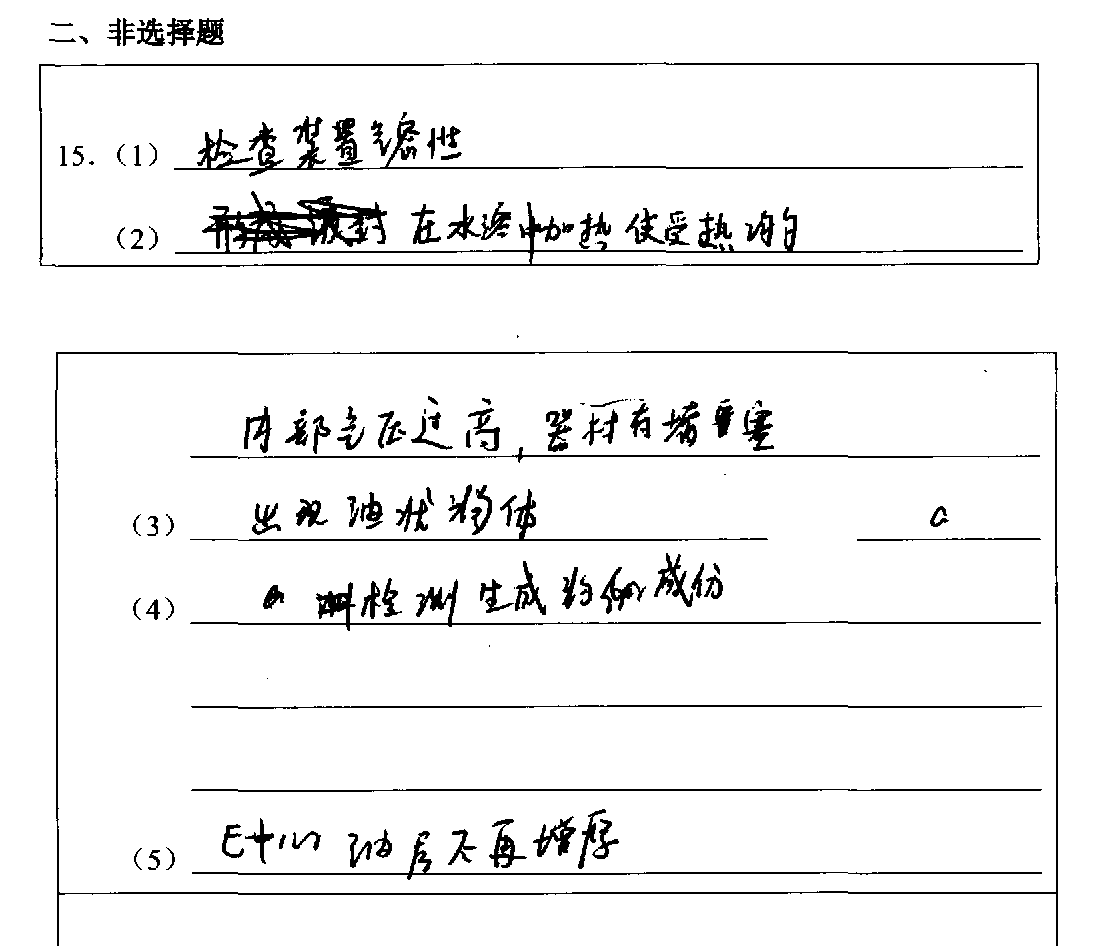 二、非选择题
15.（1）检查装置气密性
（2）在水浴中加热使受热均匀
内部气压过高，器材有堵塞
（3）出现油状物体 a
（4）a 检测生成物的成份
（5）E中油层不再增厚